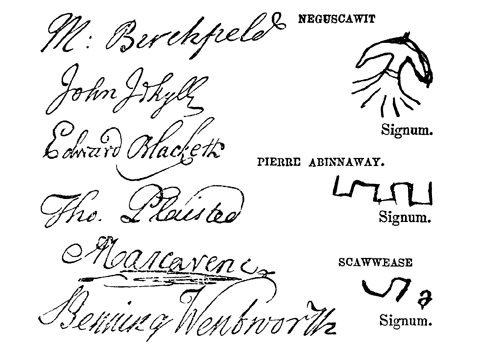 M: Berchfield
John Jekyll
Edward Blackett
Tho. Plaisted
Mascarene
Benning Wentworth
NEGUSCAWIT
Signum.
PIERRE ABINNAWAY.
Signum.
SCAWWEASE
Signum.